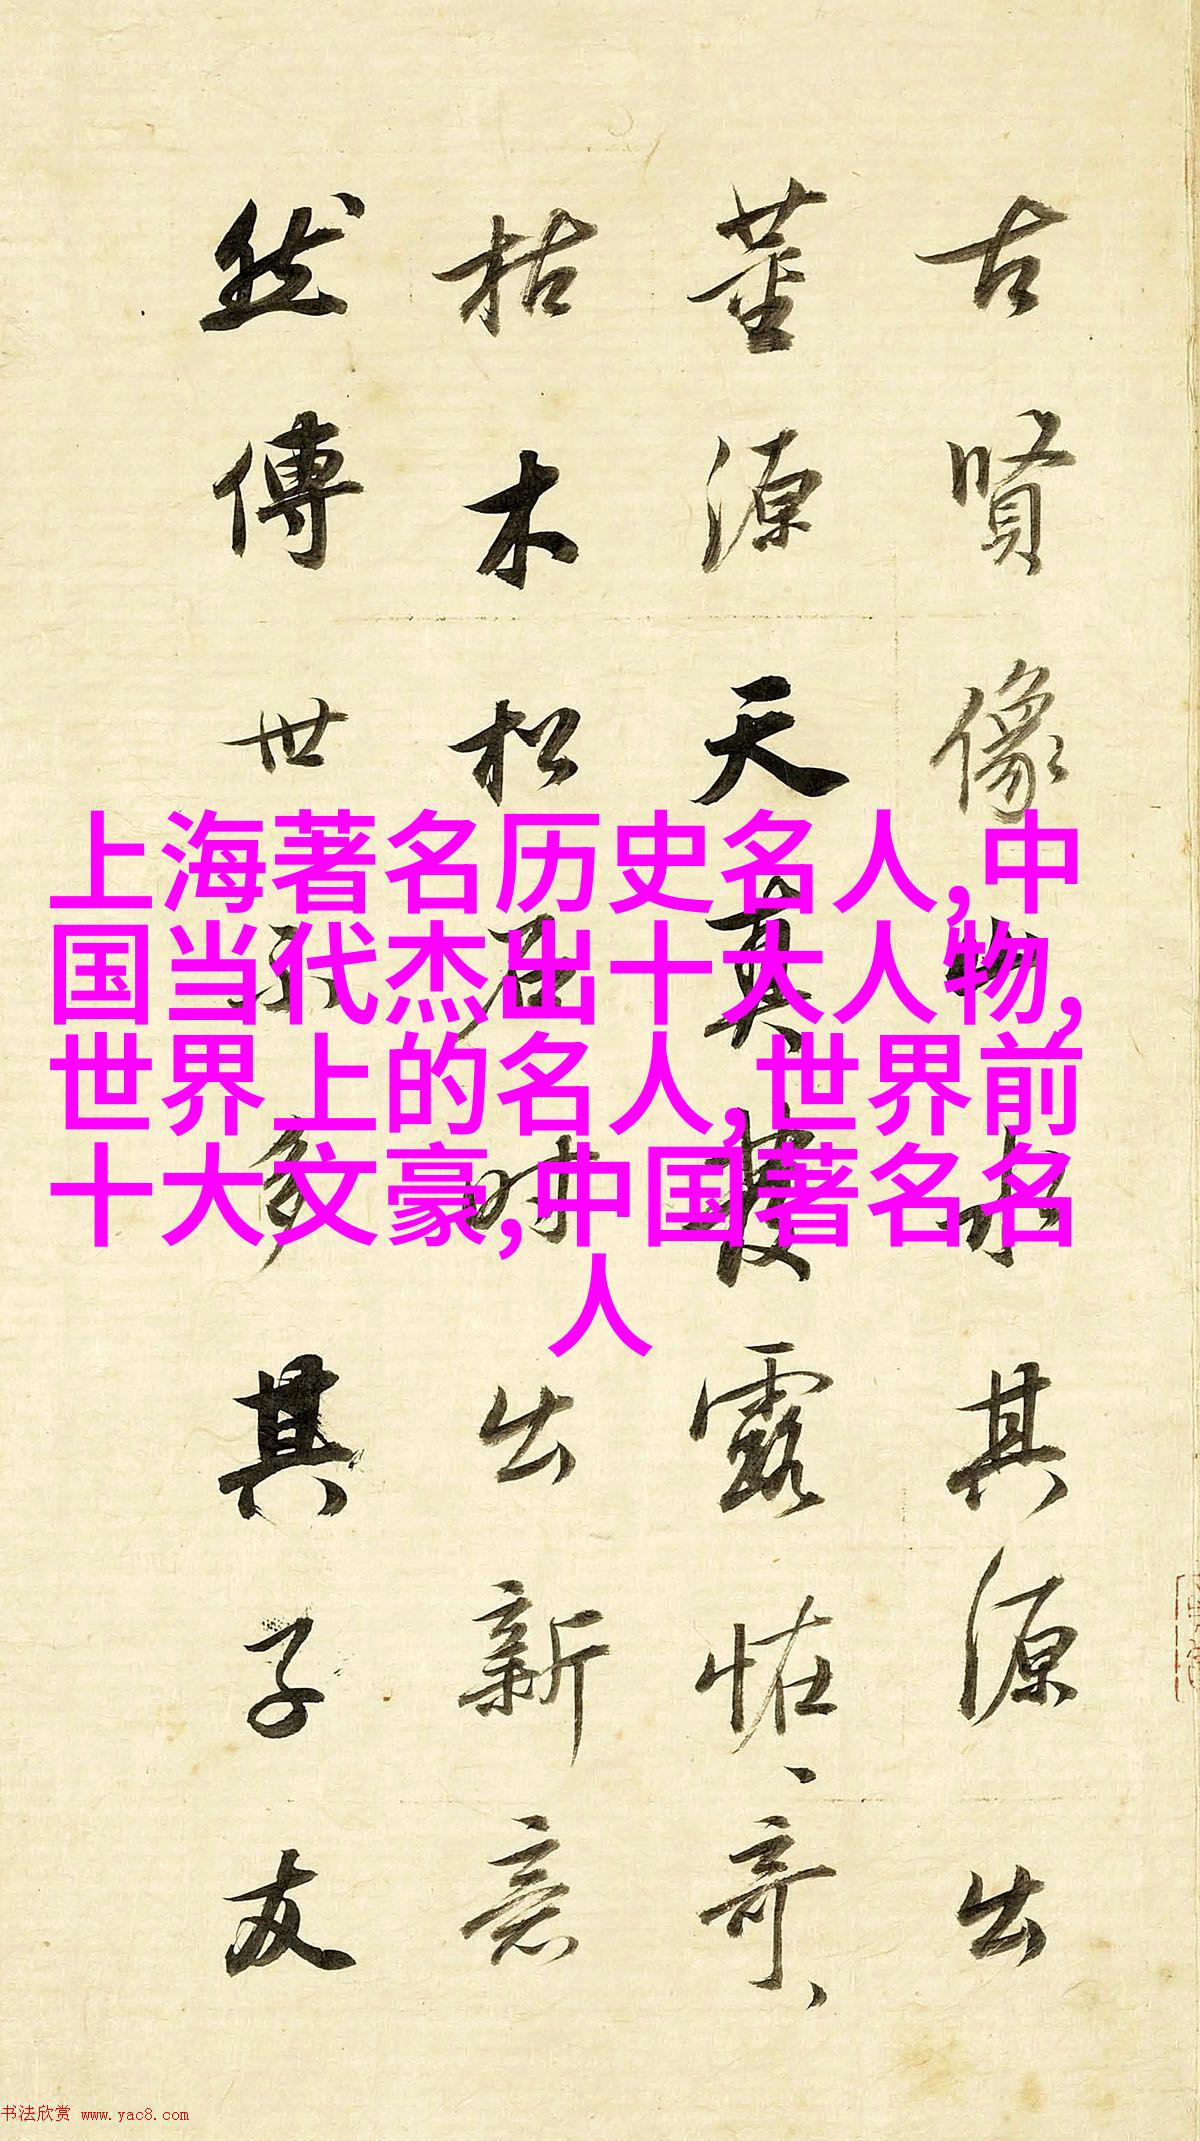 古賢像山水其源出
董源天真發露怪、奇、
枯木松石時出新意
然傳世不多其子友
上海著名历史名人,中
国当代杰出十大人物,
世界上的名人,世界前
十大文豪,中国著名名
人
书法欣赏 www.yac8.com